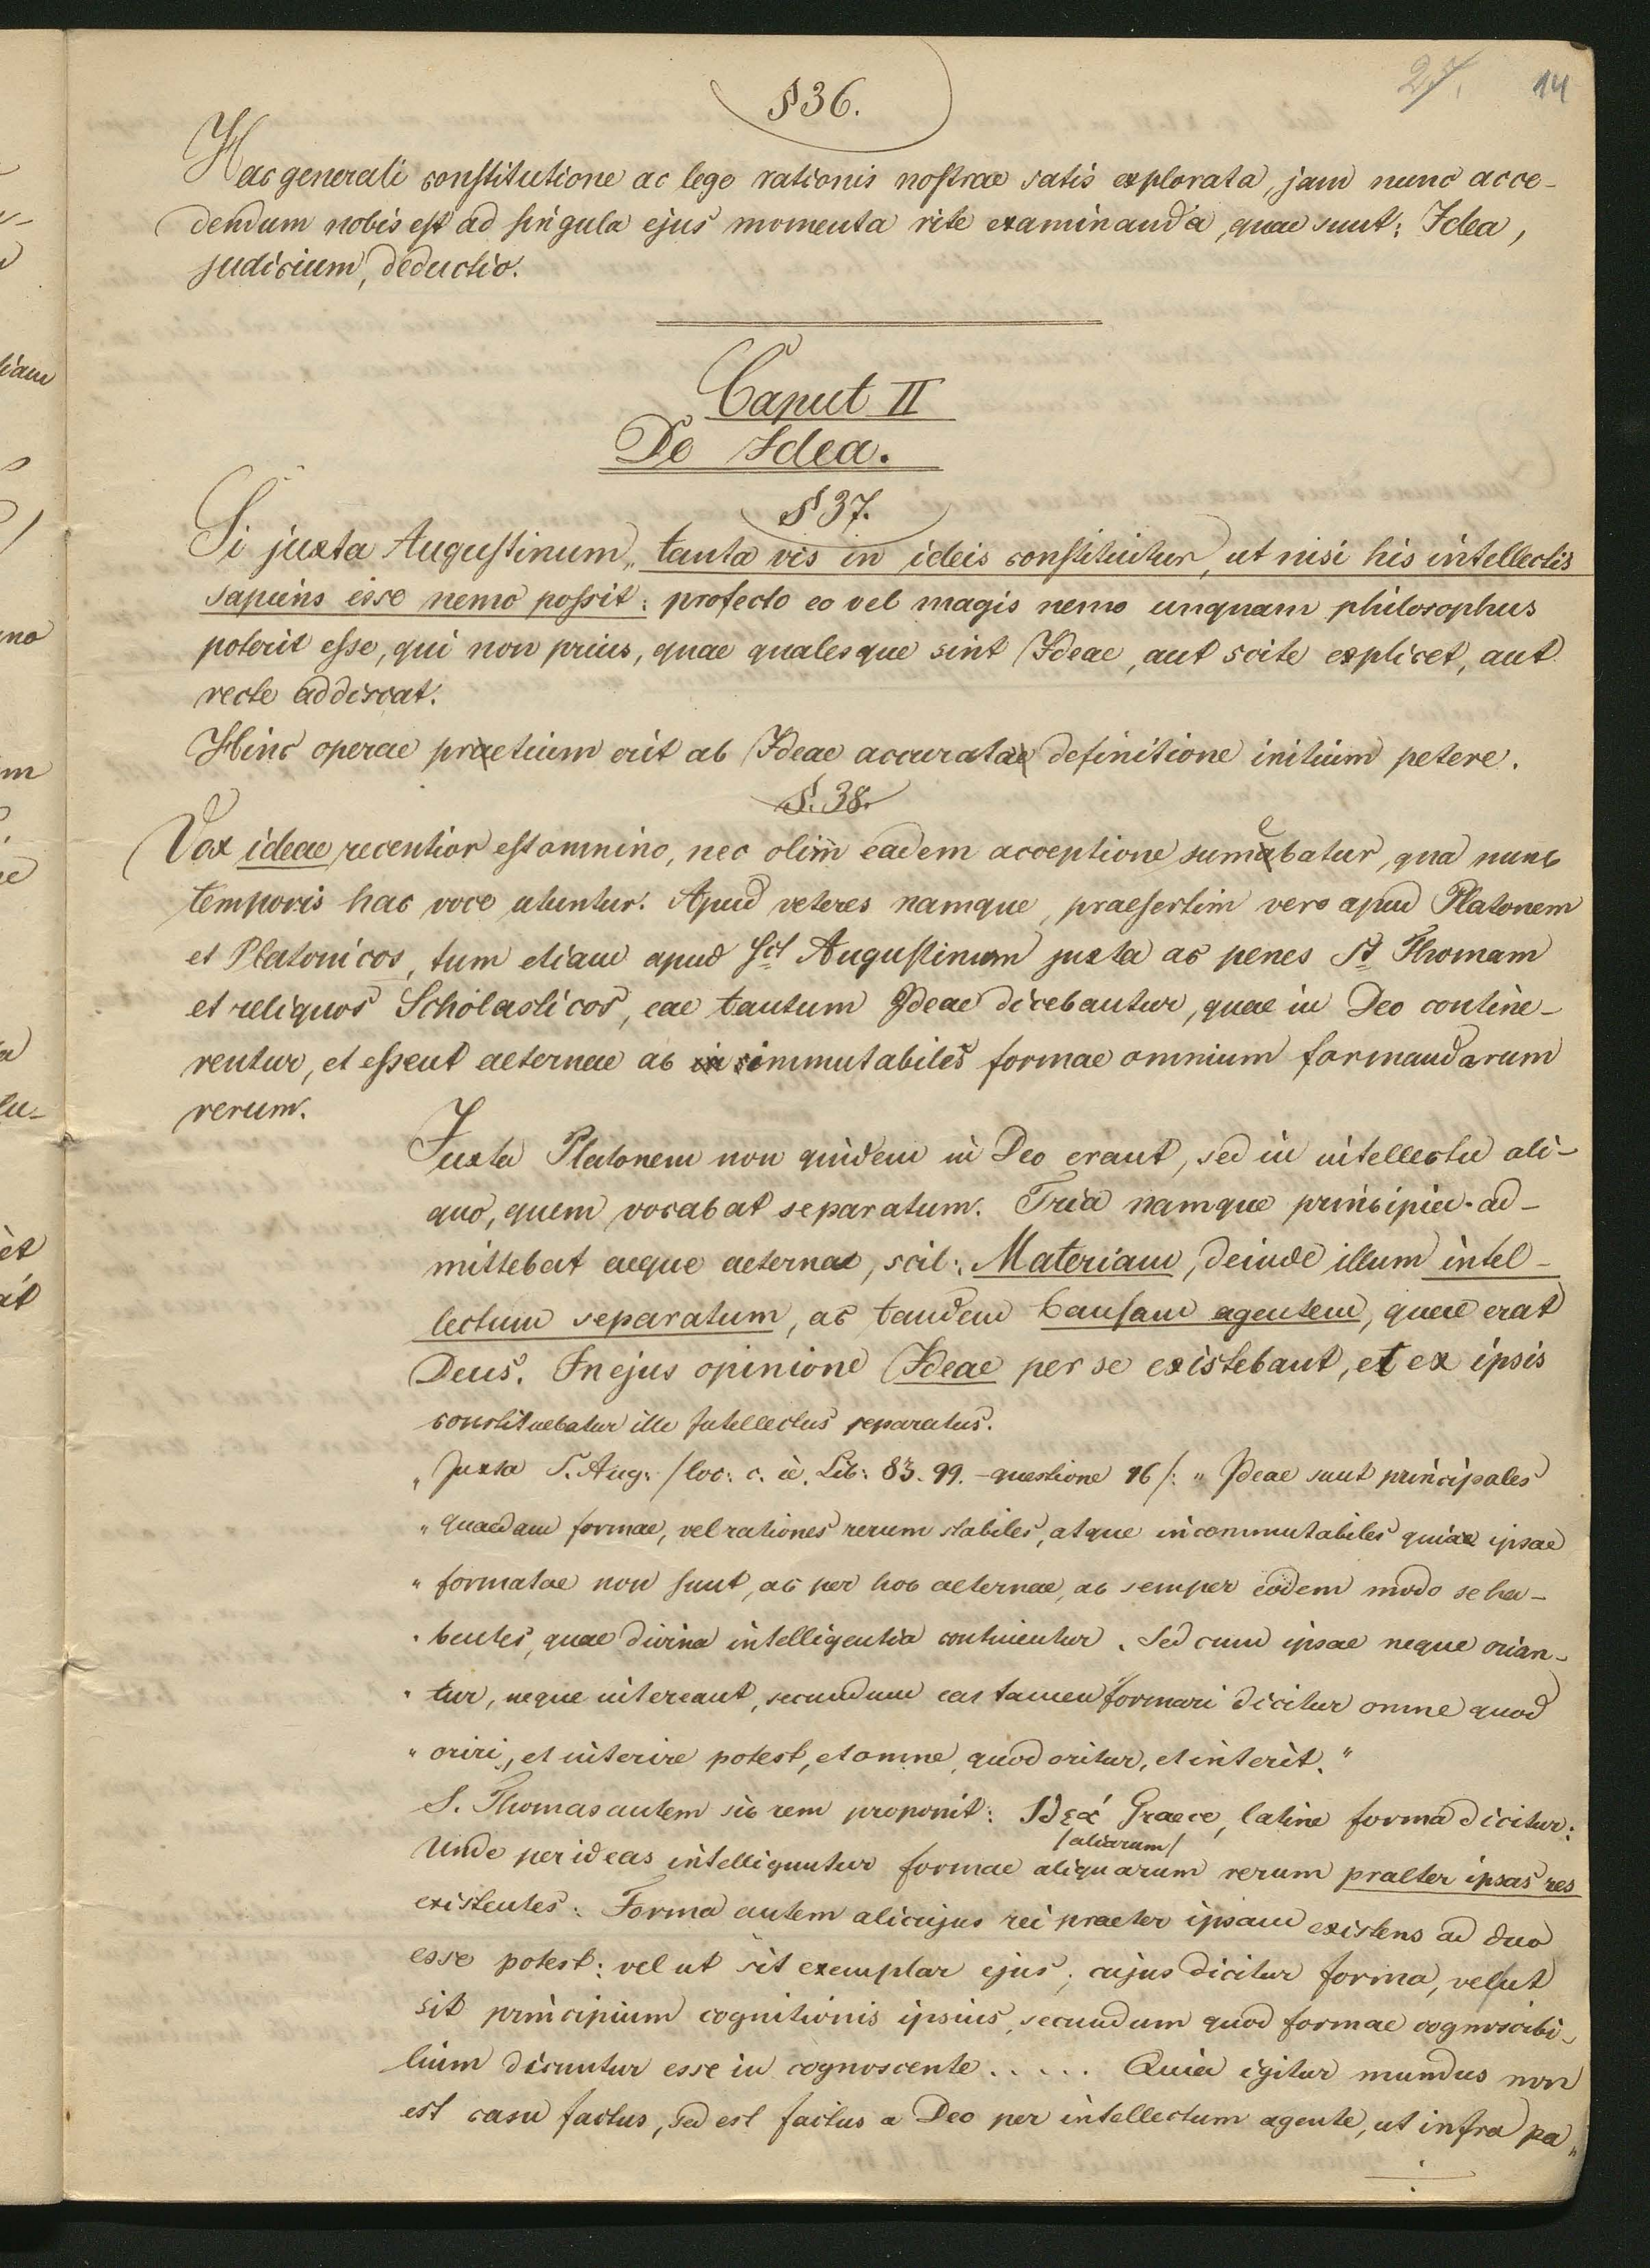 27. 14
§ 36.
Hac generali constitutione ac lege rationis nostrae satis explorata, jam nunc acce-
dendum nobis est ad singula ejus momenta rite examinanda, quae sunt: Idea,
judicium, deductio.
Caput II
De Idea.
§ 37.
Si juxta Augustinum „tanta vis in ideis constituitur, ut nisi his intellectis
sapiens esse nemo possit: profecto eo vel magis nemo unquam philosophus
poterit esse, qui non prius, quae qualesque sint Ideae, aut scite explicet, aut
recte addiscat.
Hinc operae praetium erit ab Ideae accuratae definitione initium petere.
§. 38.
Vox ideae recentior est omnino, nec olim eadem acceptione sumebatur, qua nunc
temporis hac voce utuntur. Apud veteres namque, praesertim vero apud Platonem
et Platonicos, tum etiam apud Sct Augustinum juxta ac penes St Thomam
et reliquos Scholasticos, eae tantum Ideae dicebantur, quae in Deo contine-
rentur, et essent aeternae ac immutabiles formae omnium formandarum
rerum.
Juxta Platonem non quidem in Deo erant, sed in intellectu ali-
quo, quem vocabat separatum. Tria namque principia ad-
mittebat aeque aeterna, scil: Materiam, deinde illum intel-
lectum separatum, ac tandem Causam agentem, quae erat
Deus. In ejus opinione Ideae per se existebant, et ex ipsis
constituebatur ille Intellectus separatus.
„Juxta S. Aug: /loc: c. è. Lib: 83. 99. - questione 16/: „Ideae sunt principales
„quaedam formae, vel rationes rerum stabiles, atque incommutabiles quiae ipsae
„formatae non sunt, ac per hoc aeternae, ac semper eodem modo se ha-
„bentes, quae divina intelligentia continentur. Sed cum ipsae neque orian-
„tur, neque intereant, secundum eas tamen formari dicitur omne quod
„oriri, et interire potest, et omne, quod oritur, et interit."
S. Thomas autem sic rem proponit: Ιδεά Graece, latine forma dicitur:
/aliarum/
Unde per ideas intelliguntur formae aliquarum rerum praeter ipsas res
existentes: Forma autem alicujus rei praeter ipsam existens ad duo
esse potest: vel ut sit exemplar ejus, cujus dicitur forma, vel ut
sit principium cognitionis ipsius, secundum quod formae cognoscibi-
lium dicuntur esse in cognoscente..... Quia igitur mundus non
est casu factus, sed est factus a Deo per intellectum agente, ut infra pa„